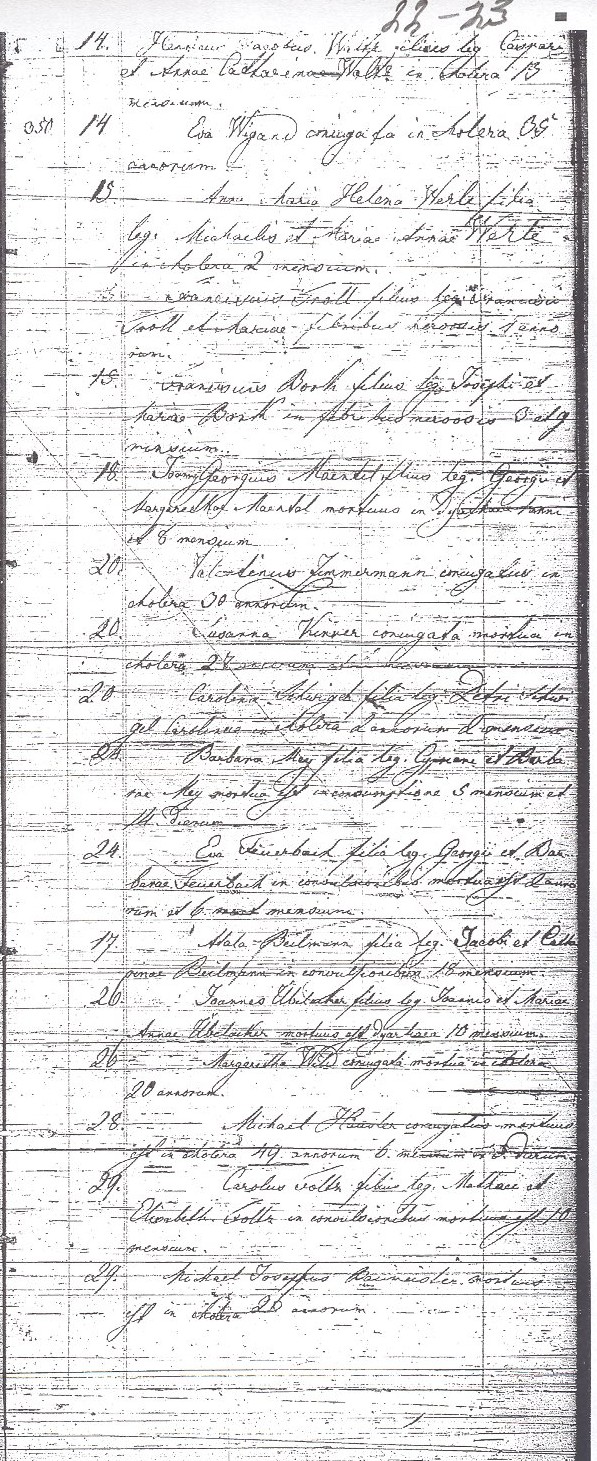 22-23
14. Henricus Jacobus Wolke filius leg. Caspari
et Annae Catharinae Wolke in cholera 13
mensium.
350 14 Eva Wigand conjugata in cholera 35
annorum
15 Anna Maria Helena Werle filia
leg. Michaelis et Mariae Annae Werle
in cholera 2 mensium.
Franciscus Troll filius leg. Francisci
Troll et Mariae febribus nervosis 1 anno
rum.
15. Franciscus Bork filius leg. Josephi et
Mariae Bork in febribus nervosis 3 et 9
minsium.
18. Georgius Maentel filius leg. Georgii et
Margarethae Maentel mortuus in anni
et 8 mensium
20. Valentinus Zimmermann conjugatus in
cholera 30 annorum.
20. Susanna conjugata mortua in
cholera 27
20 Carolina filia leg. Petri
gel Carolinae in cholera 2 annorum 2 mensium
24. Barbara Mey filia leg. et Barba
rae Mey mortua est in consumptione 5 mensium et
14 dierum
24 Eva Feuerbach filia leg. Georgii et Bar
barae Feuerbach in convulsionibus mortua est 2 anno
rum et 6 mensium.
17. Beilmann filia leg. Jacobi et Catha
rinae Beilmann in convulsionibus 18 mensium.
26 Joannes filius leg. Joannis et Mariae
Annae mortuus est 10 mensium.
26 Margaretha Wild conjugata mortua in cholera
20 annorum.
28. Michael conjugatus mortuus
est in cholera 49 annorum 6 mensium et dierum.
29. Carolus Foltz filius leg. Mathaei et
Elisabeth Foltz in convulsionibus mortuus est 10
mensium.
29. Michael Josephus Baumeister mortuus
est in cholera 20 annorum